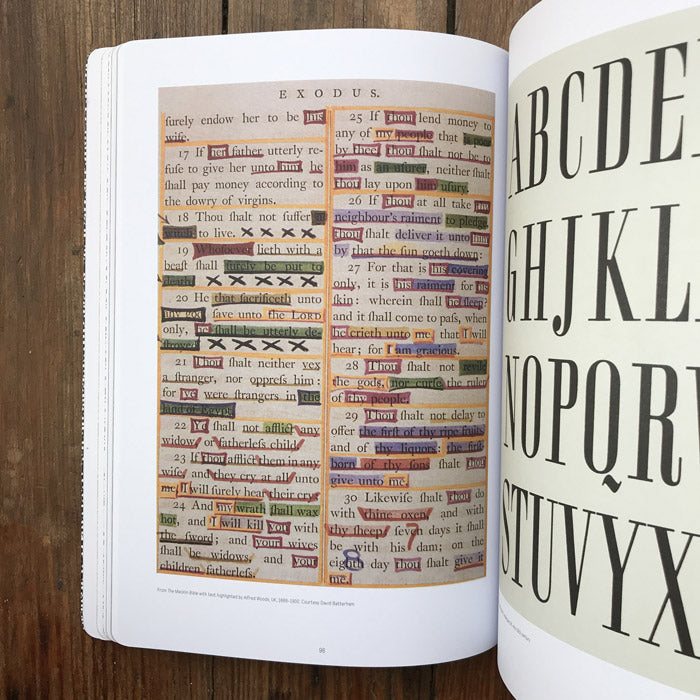 EXODUS.
ſurely endow her to be his
wife.
17 If her father utterly re-
fuſe to give her unto him, he
ſhall pay money according to
the dowry of virgins.
18 Thou ſhalt not ſuffer a
witch to live.
19 Whoſoever lieth with a
beaſt ſhall ſurely be put to
death.
20 He that ſacrificeth unto
any god ſave unto the LORD
only, he ſhall be utterly de-
ſtroyed.
21 Thou ſhalt neither vex
a ſtranger, nor oppreſs him:
for ye were ſtrangers in the
land of Egypt.
22 Ye ſhall not afflict any
widow, or fatherleſs child.
23 If thou afflict them in any
wiſe, and they cry at all unto
me, I will ſurely hear their cry;
24 And my wrath ſhall wax
hot, and I will kill you with
the ſword; and your wives
ſhall be widows, and your
children fatherleſs.
25 If thou lend money to
any of my people that is poor
by thee, thou ſhalt not be to
him as an uſurer, neither ſhalt
thou lay upon him uſury.
26 If thou at all take thy
neighbour's raiment to pledge,
thou ſhalt deliver it unto him
by that the ſun goeth down:
27 For that is his covering
only, it is his raiment for his
ſkin: wherein ſhall he ſleep?
and it ſhall come to paſs, when
he crieth unto me, that I will
hear; for I am gracious.
28 Thou ſhalt not revile
the gods, nor curſe the ruler
of thy people.
29 Thou ſhalt not delay to
offer the firſt of thy ripe fruits,
and of thy liquors: the firſt-
born of thy ſons ſhalt thou
give unto me.
30 Likewiſe ſhalt thou do
with thine oxen, and with
thy ſheep: ſeven days it ſhall
be with his dam; on the
8
eighth day thou ſhalt give it
me.
From The Macklin Bible with text highlighted by Alfred Woods, UK, 1898–1900. Courtesy David Batterham
96
ABCDE
GHJKL
NOPQR
STUVYX